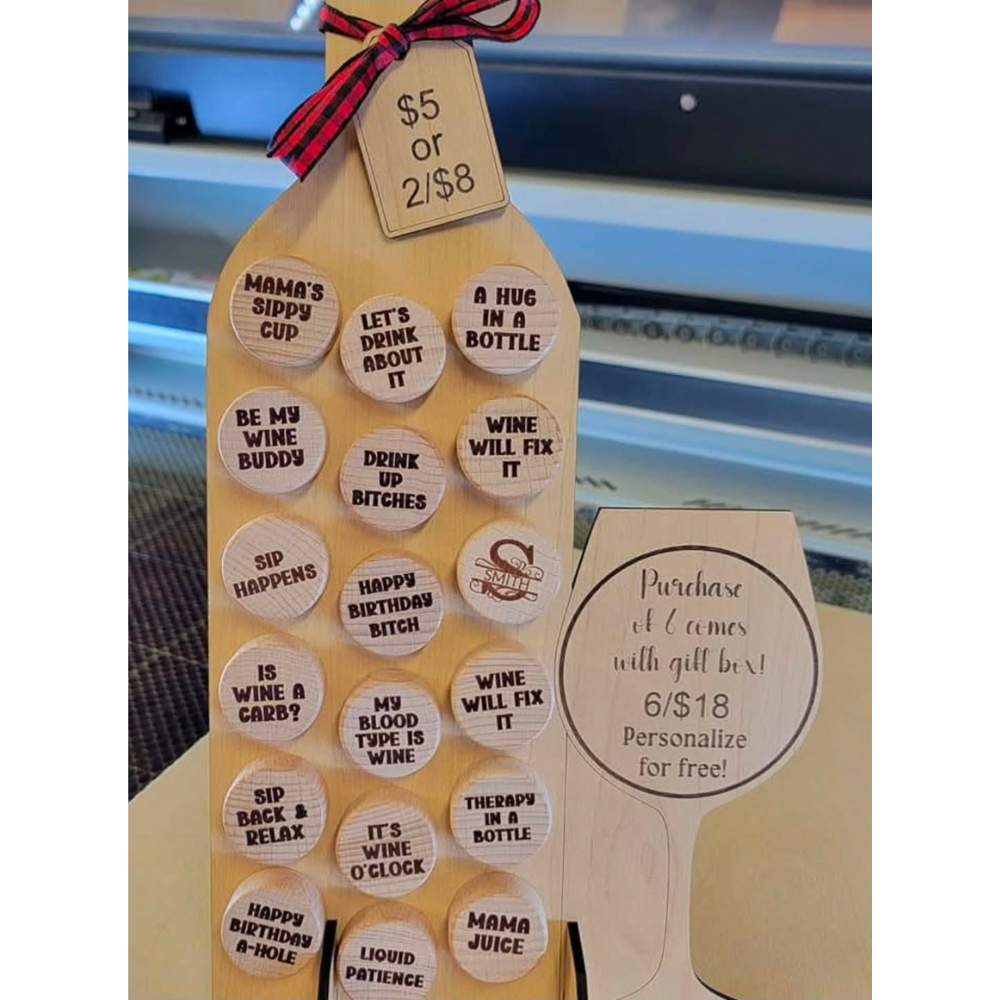 $5
or
2/$8
MAMA'S
SIPPY
CUP
LET'S
DRINK
ABOUT
IT
A HUG
IN A
BOTTLE
BE MY
WINE
BUDDY
DRINK
UP
BITCHES
WINE
WILL FIX
IT
SIP
HAPPENS
HAPPY
BIRTHDAY
BITCH
S
SMITH
IS
WINE A
CARB?
MY
BLOOD
TYPE IS
WINE
WINE
WILL FIX
IT
SIP
BACK &
RELAX
IT'S
WINE
O'CLOCK
THERAPY
IN A
BOTTLE
HAPPY
BIRTHDAY
A-HOLE
LIQUID
PATIENCE
MAMA
JUICE
Purchase
of 6 comes
with gift box!
6/$18
Personalize
for free!